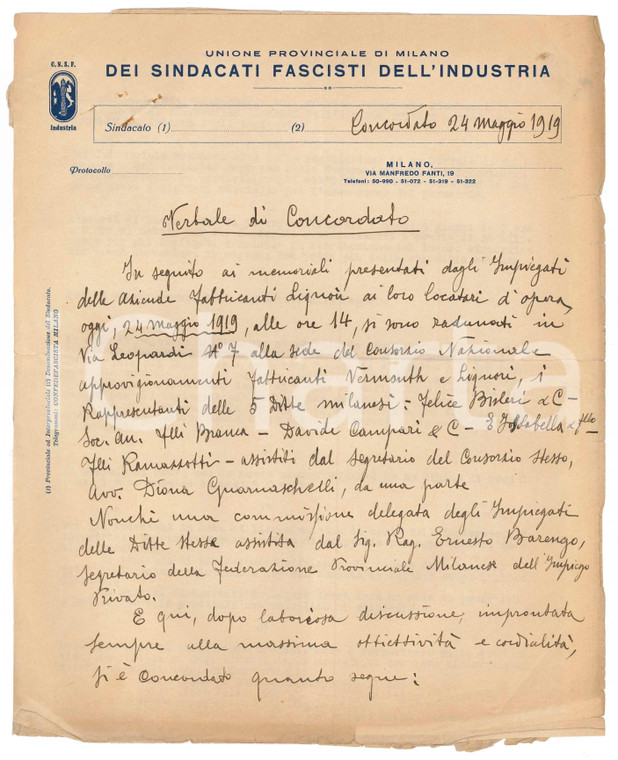 UNIONE PROVINCIALE DI MILANO
DEI SINDACATI FASCISTI DELL'INDUSTRIA
C.N.S.F.
Industria
Sindacato (1) (2) Concordato 24 maggio 1919
Protocollo
MILANO,
VIA MANFREDO FANTI, 19
Telefoni: 50-990 - 51-072 - 51-319 - 51-322
Verbale di Concordato
In seguito ai memoriali presentati dagli Impiegati
delle Aziende Fabbricanti Liquori ai loro locatari d'opera,
oggi, 24 maggio 1919, alle ore 14, si sono radunati in
Via Leopardi N° 7 alla sede del Consorzio Nazionale
approvigionamenti Fabbricanti Vermouth e Liquori, i
Rappresentanti delle 5 Ditte milanesi: Felice Bisleri & C -
Soc. An. Flli Branca - Davide Campari & C - E
Flli Ramazzotti - assistiti dal segretario del Consorzio stesso,
Avv. Diana Guarnaschelli, da una parte
Nonchè una commissione delegata degli Impiegati
delle Ditte stesse assistita dal Sig. Rag. Ernesto Barengo,
segretario della Federazione Provinciale Milanese dell'Impiego
Privato.
E qui, dopo laboriosa discussione, improntata
sempre alla massima obbiettività e cordialità,
si è concordato quanto segue:
(1) Provinciale od Interprovinciale (2) Denominazione del Sindacato.
Telegrammi: CONFEDEFASCISTA MILANO
Charta